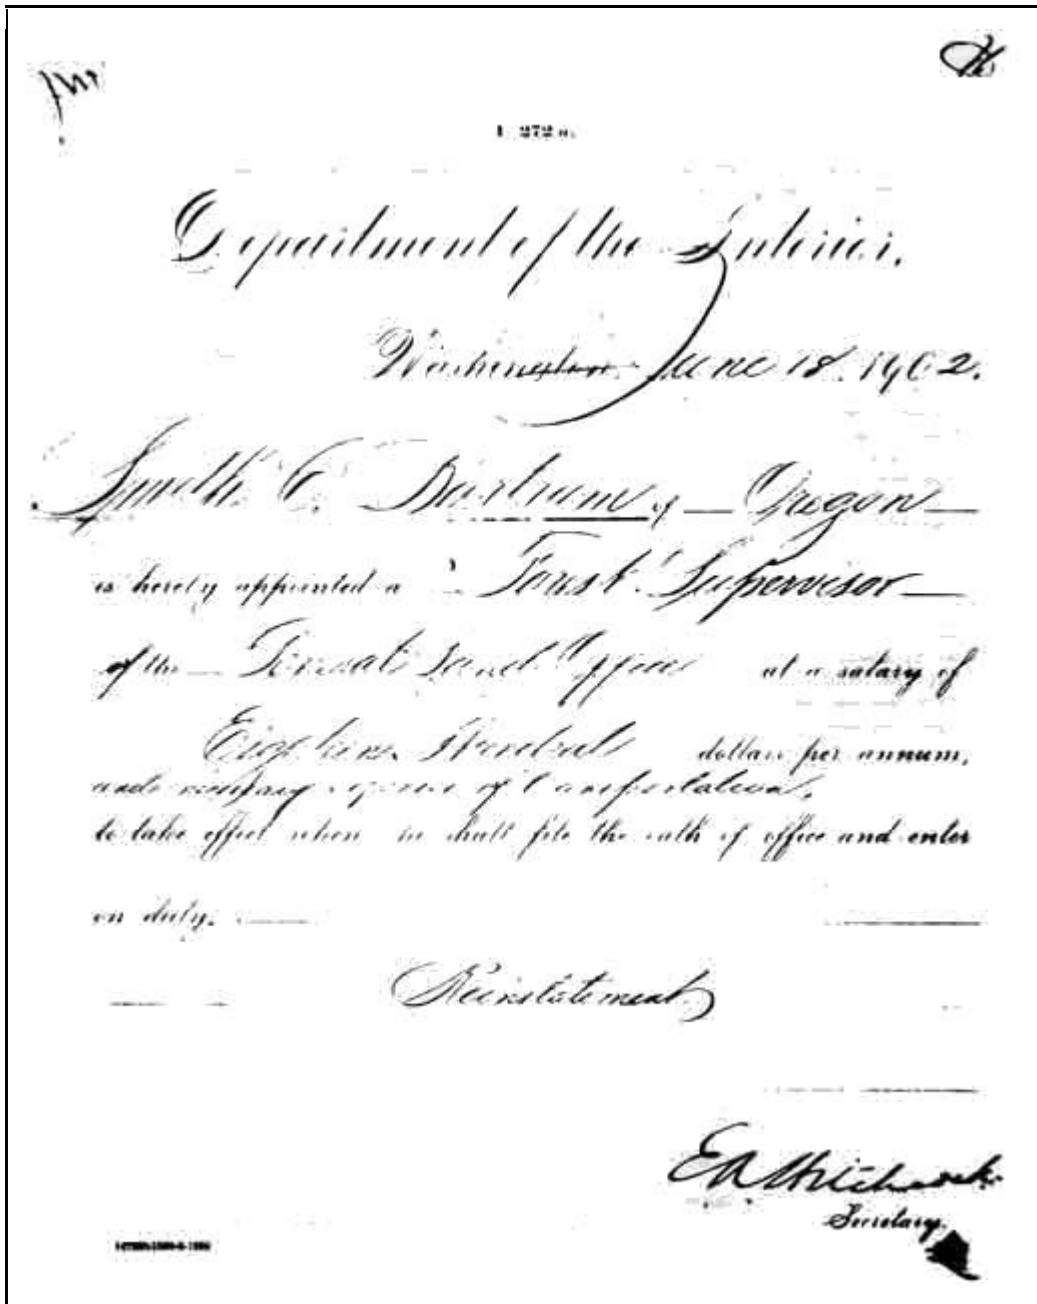 1 272 a.
Department of the Interior,
Washington June 18, 1902.
Smith C. Bartrum of Oregon
is hereby appointed a Forest Supervisor
of the General Land Office at a salary of
Eighteen Hundred dollars per annum,
and necessary expenses of transportation,
to take effect when he shall file the oath of office and enter
on duty.
Reinstatement
E A Hitchcock
Secretary.